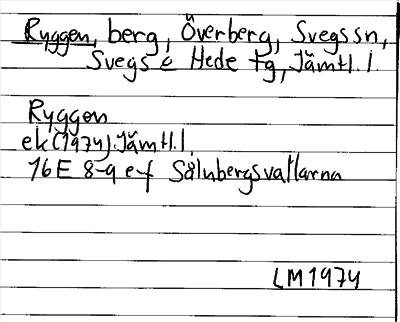 Ryggen, berg, Överberg, Svegs sn,
Svegs o Hede tg, Jämtl. l
Ryggen
ek (1974) Jämtl. l.
16E 8-9 e-f Sålnbergsvallarna
LM 1974